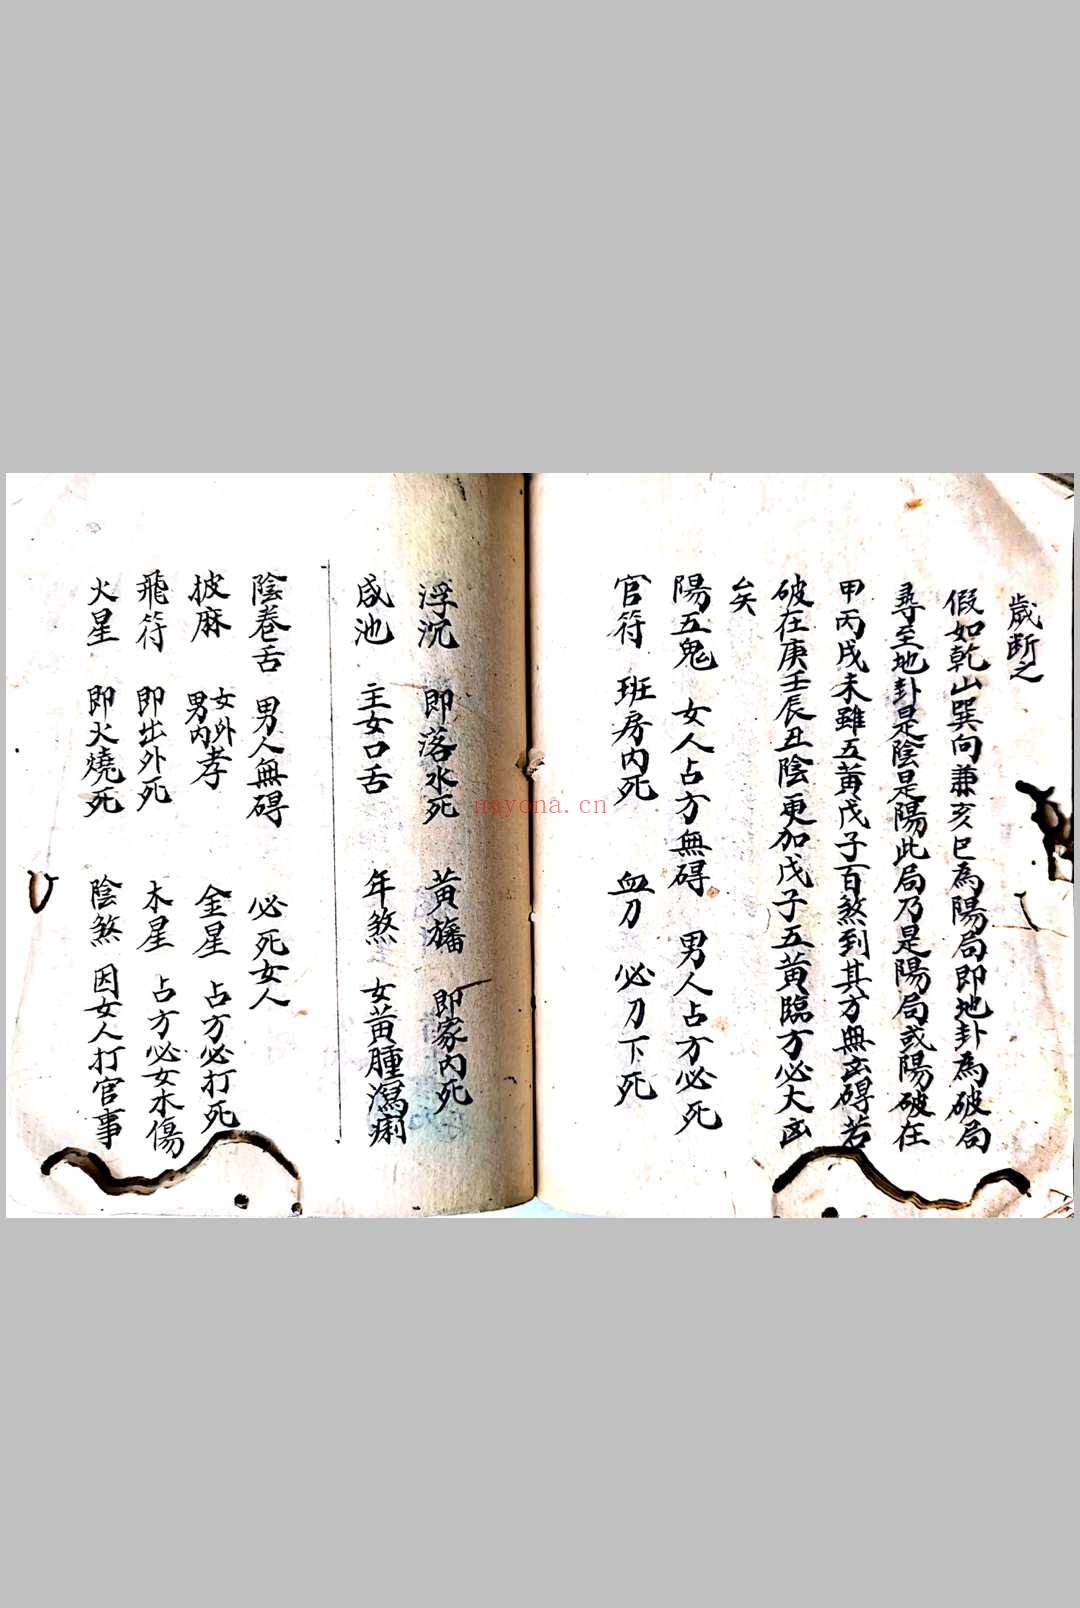 歲斷之
假如乾山巽向兼亥巳為陽局即地卦為破局
尋至地卦是陰是陽此局乃是陽局或陽破在
甲丙戌未雖五黃戊子百煞到其方無凶碍若
破在庚壬辰丑陰更加戊子五黃臨方必大凶
矣
陽五鬼 女人占方無碍 男人占方必死
官符 班房內死 血刀 必刀下死
浮沉 即落水死 黃旛 即家內死
咸池 主女口舌 年煞 女黃腫瀉痢
陰卷舌 男人無碍 必死女人
披麻 女外男內孝 金星 占方必打死
飛符 即出外死 木星 占方必女木傷
火星 即火燒死 陰煞 因女人打官事
nayona.cn